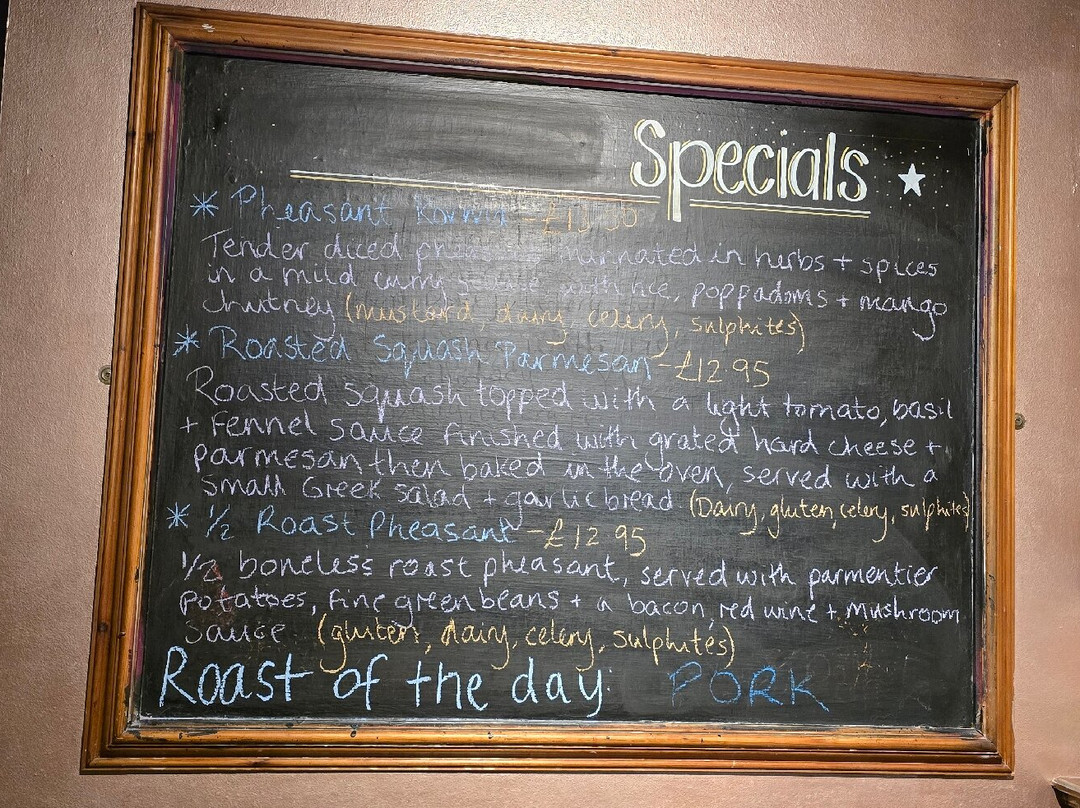 Specials
* Pheasant Korma
Tender diced marinated in herbs + spices
in a mild curry with rice, poppadoms + mango
chutney (mustard, dairy, celery, sulphites)
* Roasted Squash Parmesan - £12.95
Roasted squash topped with a light tomato, basil
+ Fennel sauce finished with grated hard cheese +
parmesan then baked in the oven, served with a
small Greek salad + garlic bread (Dairy, gluten, celery, sulphites)
* 1/2 Roast Pheasant - £12.95
1/2 boneless roast pheasant, served with parmentier
potatoes, fine green beans + a bacon, red wine + Mushroom
Sauce (gluten, dairy, celery, sulphites)
Roast of the day: PORK